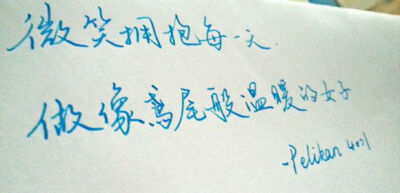 微笑拥抱每一天.
做像鸢尾般温暖的女子
-Pelikan 4001